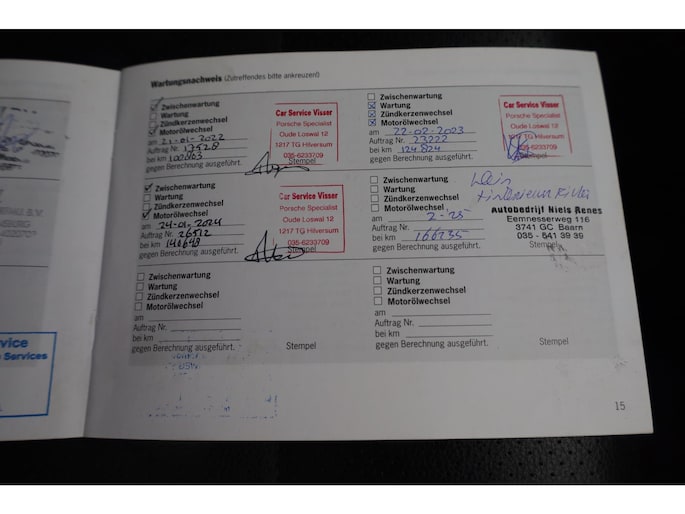 Wartungsnachweis (Zutreffendes bitte ankreuzen!)
Zwischenwartung
Wartung
Zündkerzenwechsel
Motorölwechsel
am 21-01-2022
Auftrag Nr. 17528
bei km 102863
gegen Berechnung ausgeführt.
Car Service Visser
Porsche Specialist
Oude Loswal 12
1217 TG Hilversum
035-6233709
Stempel
Zwischenwartung
Wartung
Zündkerzenwechsel
Motorölwechsel
am 22-02-2023
Auftrag Nr. 23222
bei km 124824
gegen Berechnung ausgeführt.
Car Service Visser
Porsche Specialist
Oude Loswal 12
1217 TG Hilversum
035-6233709
Stempel
Zwischenwartung
Wartung
Zündkerzenwechsel
Motorölwechsel
am 24-01-2024
Auftrag Nr. 26512
bei km 148648
gegen Berechnung ausgeführt.
Car Service Visser
Porsche Specialist
Oude Loswal 12
1217 TG Hilversum
035-6233709
Stempel
Zwischenwartung
Wartung
Zündkerzenwechsel
Motorölwechsel
am 2-25
Auftrag Nr.
bei km 166235
gegen Berechnung ausgeführt.
Klein
Autobedrijf Niels Renes
Eemnesserweg 116
3741 GC Baarn
035 - 541 39 39
Stempel
Zwischenwartung
Wartung
Zündkerzenwechsel
Motorölwechsel
am
Auftrag Nr.
bei km
gegen Berechnung ausgeführt.
Stempel
Zwischenwartung
Wartung
Zündkerzenwechsel
Motorölwechsel
am
Auftrag Nr.
bei km
gegen Berechnung ausgeführt.
Stempel
vice
Services
15